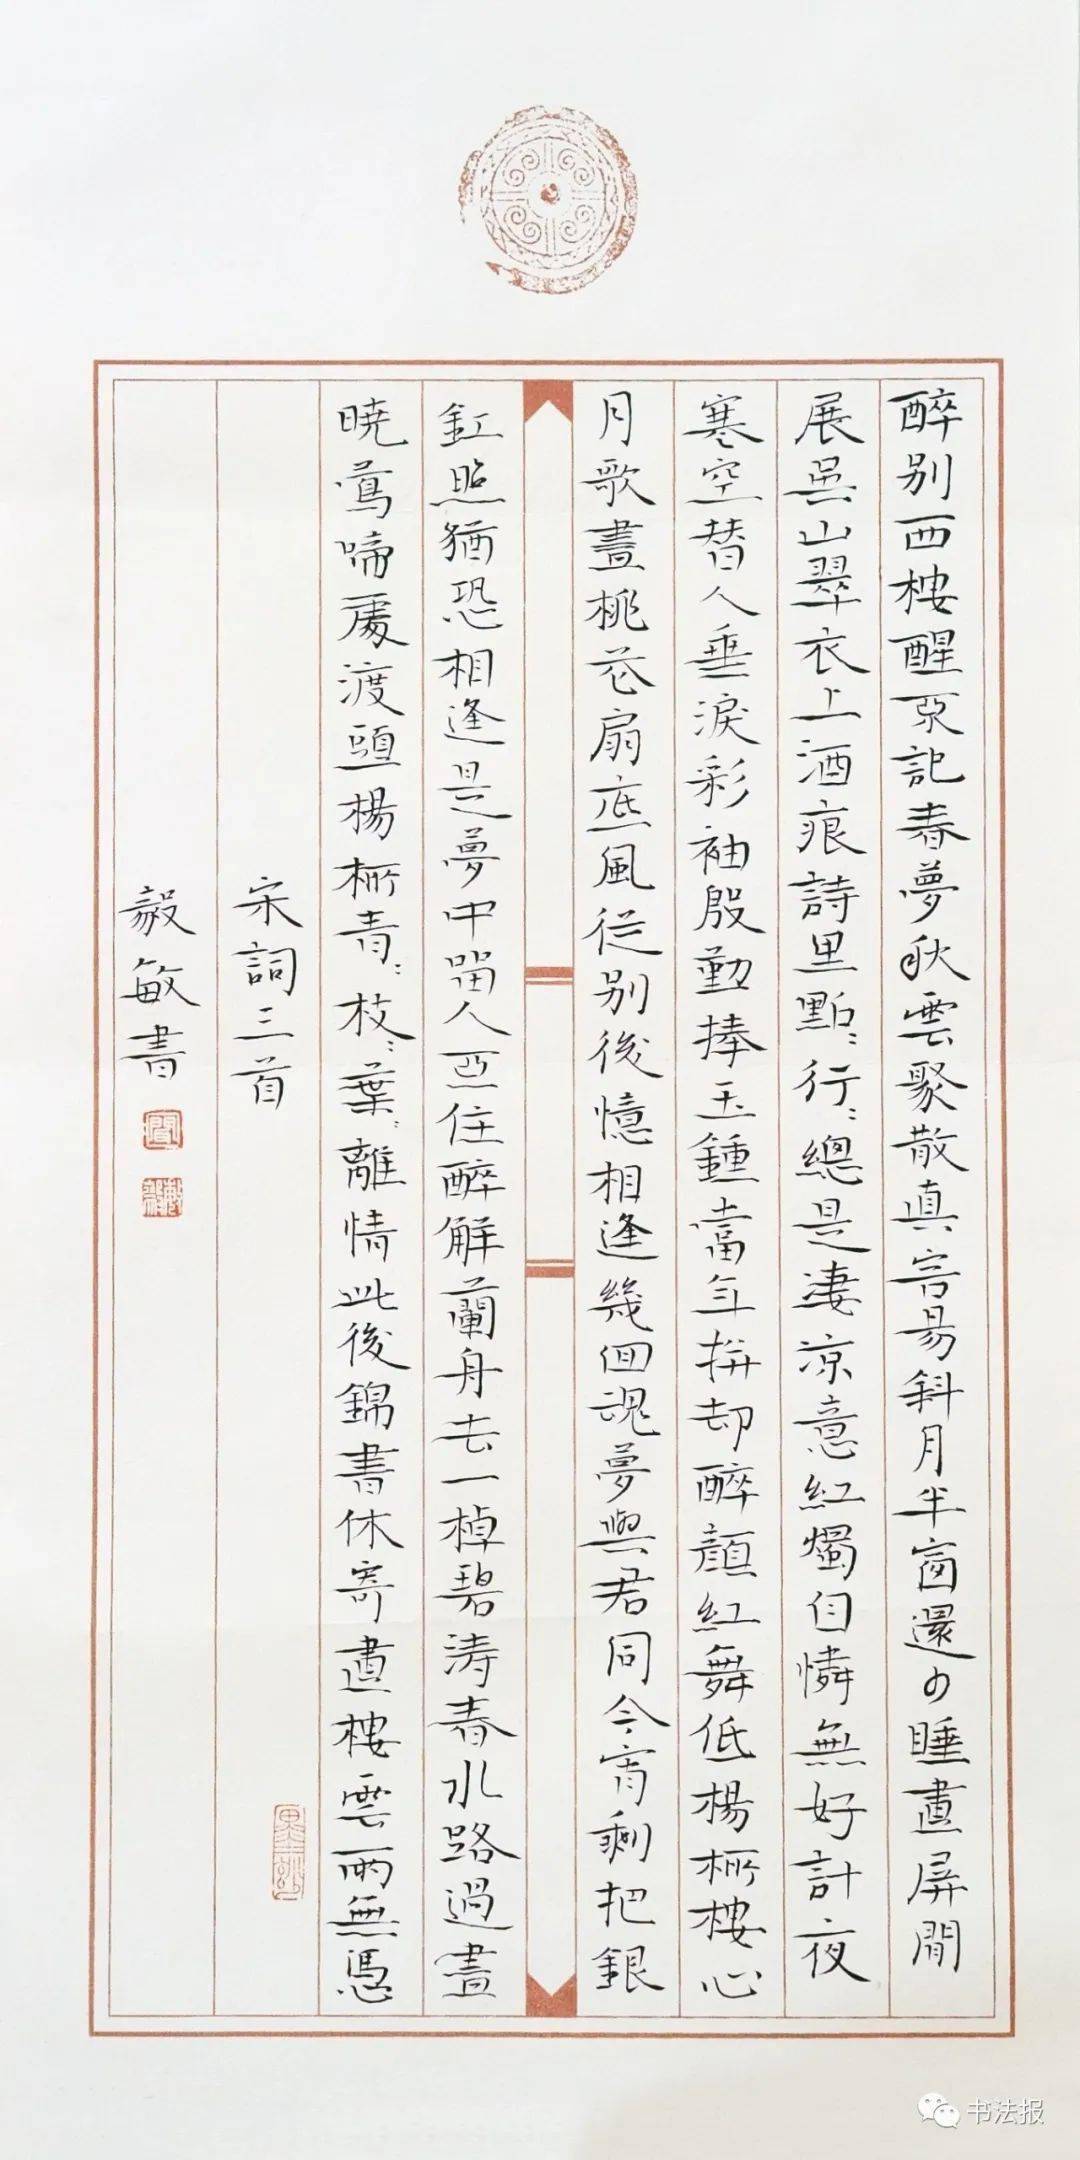 醉别西樓醒不記春夢秋雲聚散真容易斜月半窗還少睡畫屏閒
展吳山翠衣上酒痕詩里點〻行〻總是淒凉意紅燭自憐無好計夜
寒空替人垂淚彩袖殷勤捧玉鍾當年拚却醉顏紅舞低楊柳樓心
月歌盡桃花扇底風從别後憶相逢幾回魂夢與君同今宵剩把銀
釭照猶恐相逢是夢中留人不住醉解蘭舟去一棹碧涛春水路過盡
曉鶯啼處渡頭楊柳青〻枝〻葉〻離情此後錦書休寄畫樓雲雨無憑
宋詞三首
毅敏書
书法报